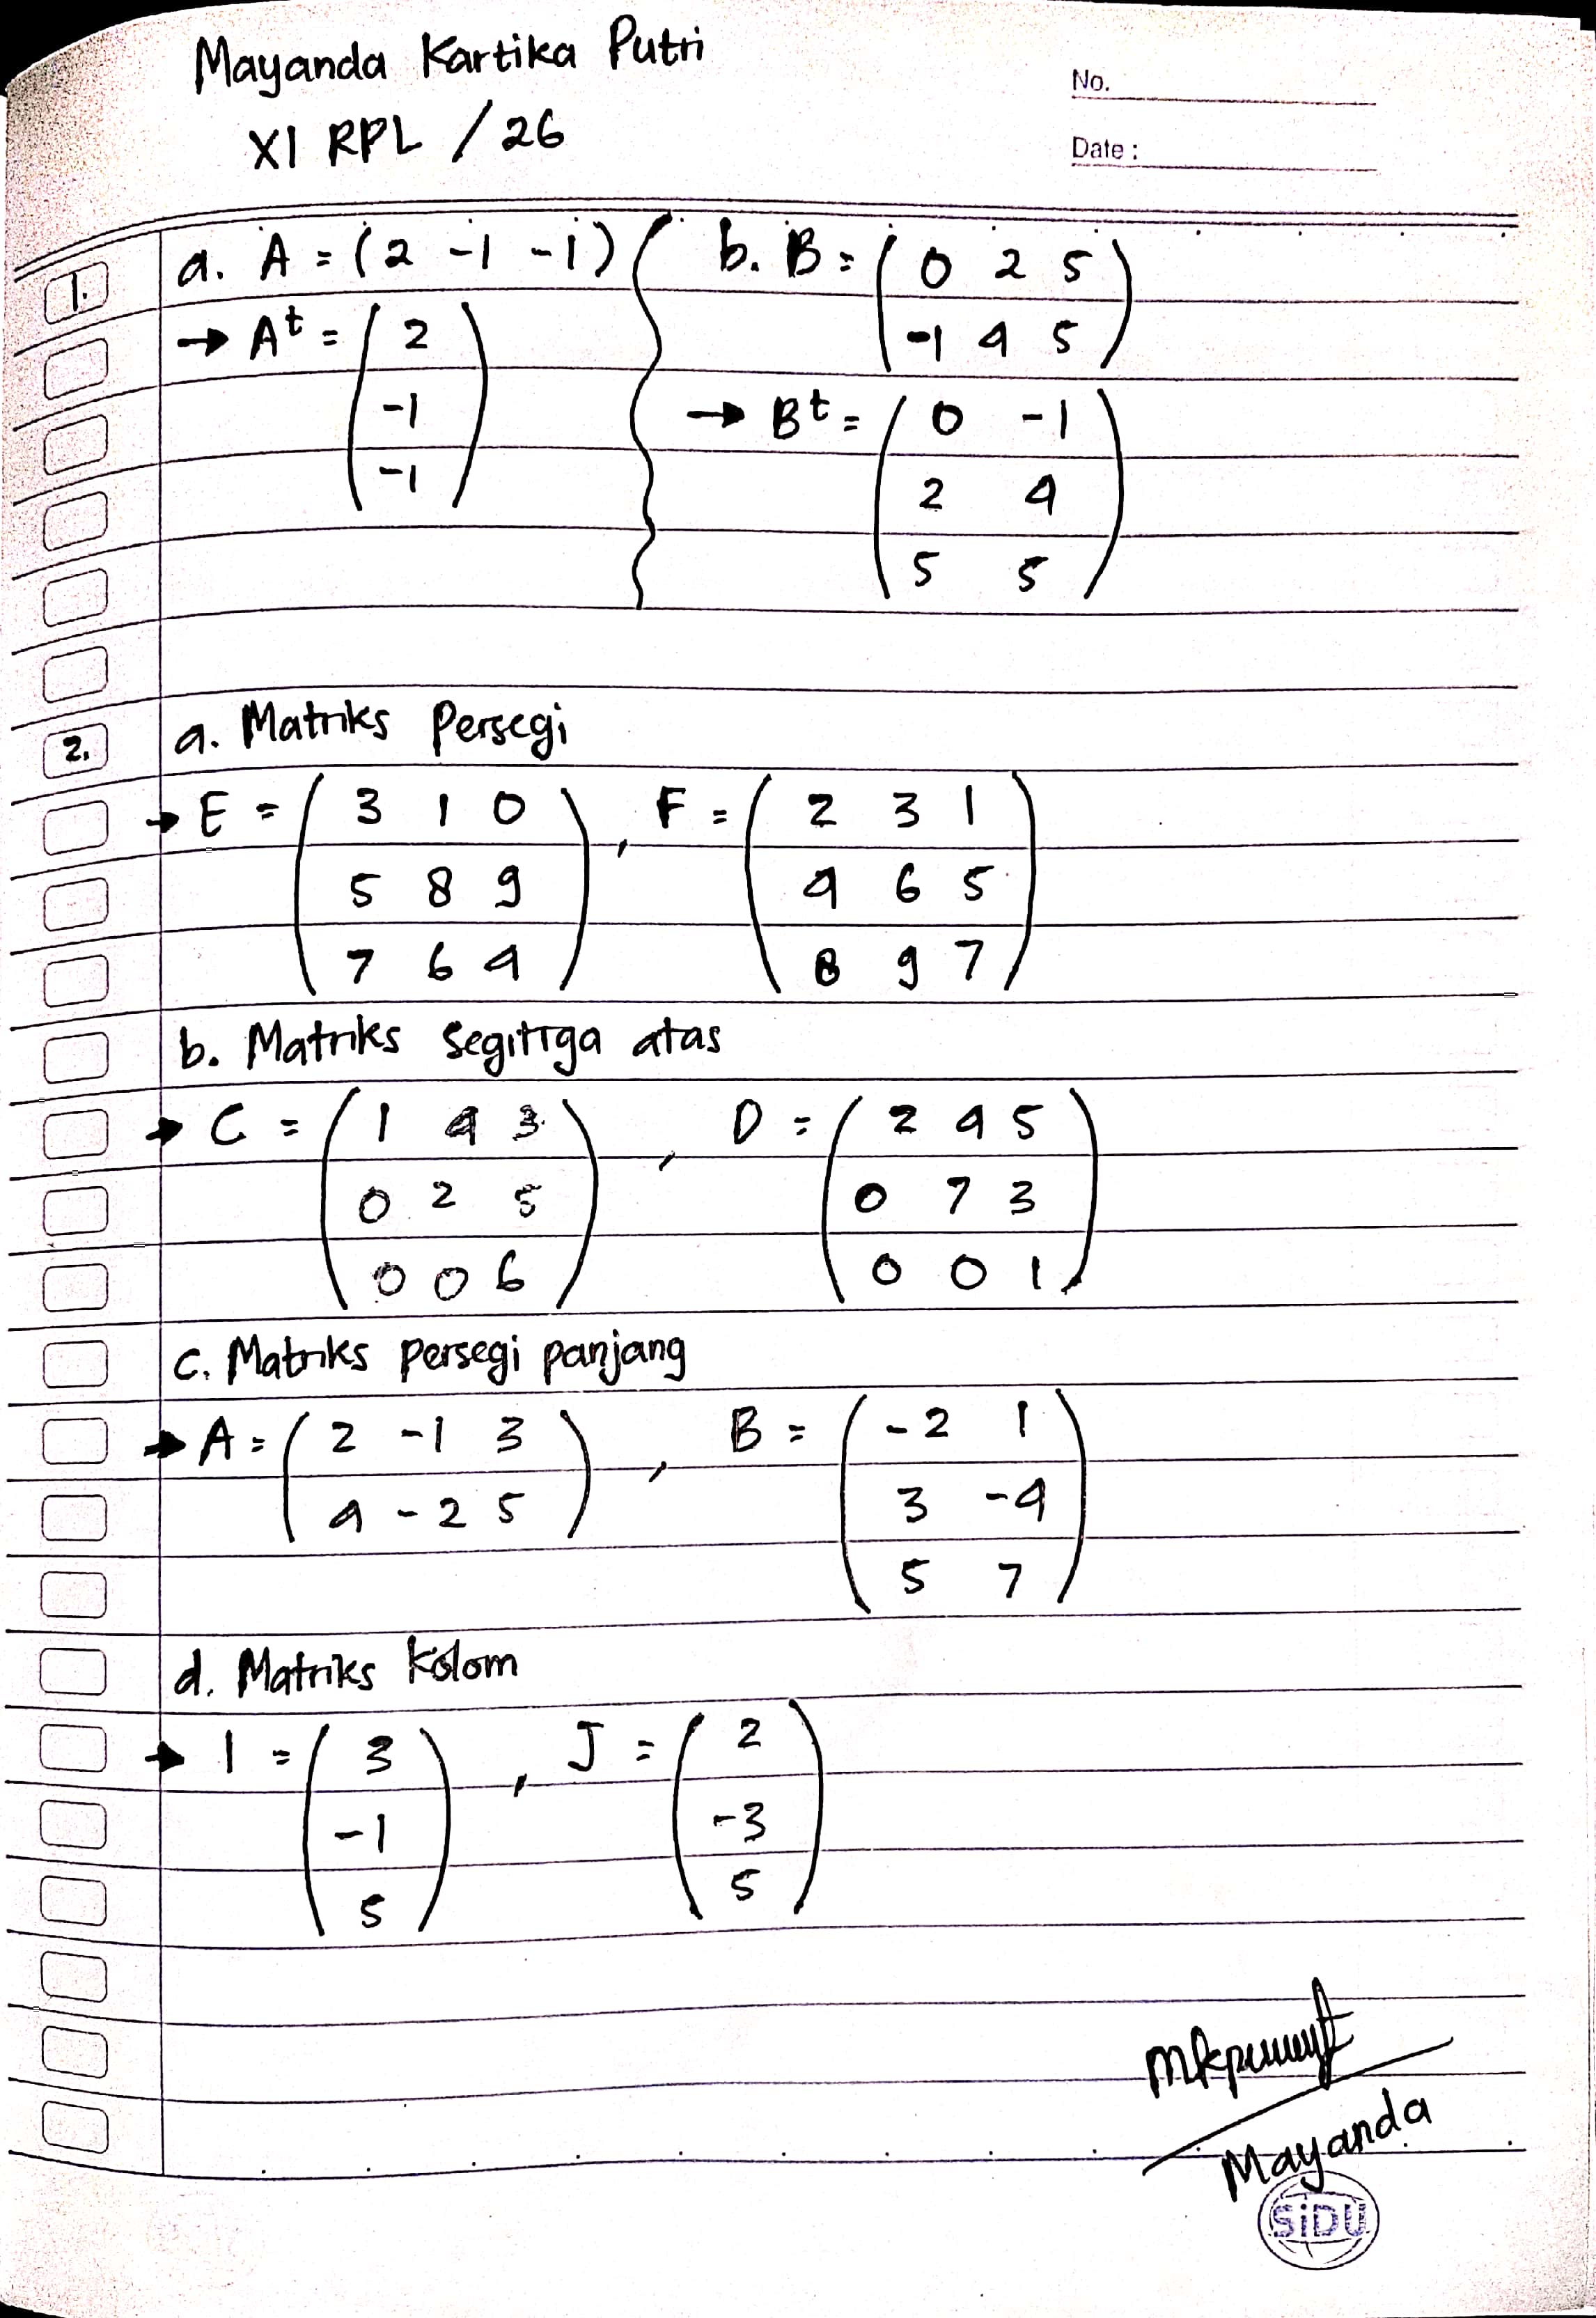 Mayanda Kartika Putri
XI RPL / 26
No.
Date :
1.
a. A = (2 -1 -1)
→ Aᵗ = (2
-1
-1)
b. B = (0 2 5
-1 4 5)
→ Bᵗ = (0 -1
2 4
5 5)
2.
a. Matriks Persegi
→ E = (3 1 0
5 8 9
7 6 4) , F = (2 3 1
4 6 5
8 9 7)
b. Matriks segitiga atas
→ C = (1 4 3
0 2 5
0 0 6) , D = (2 4 5
0 7 3
0 0 1)
c. Matriks persegi panjang
→ A = (2 -1 3
4 -2 5) , B = (-2 1
3 -4
5 7)
d. Matriks Kolom
→ I = (3
-1
5) , J = (2
-3
5)
Mayanda
SiDU